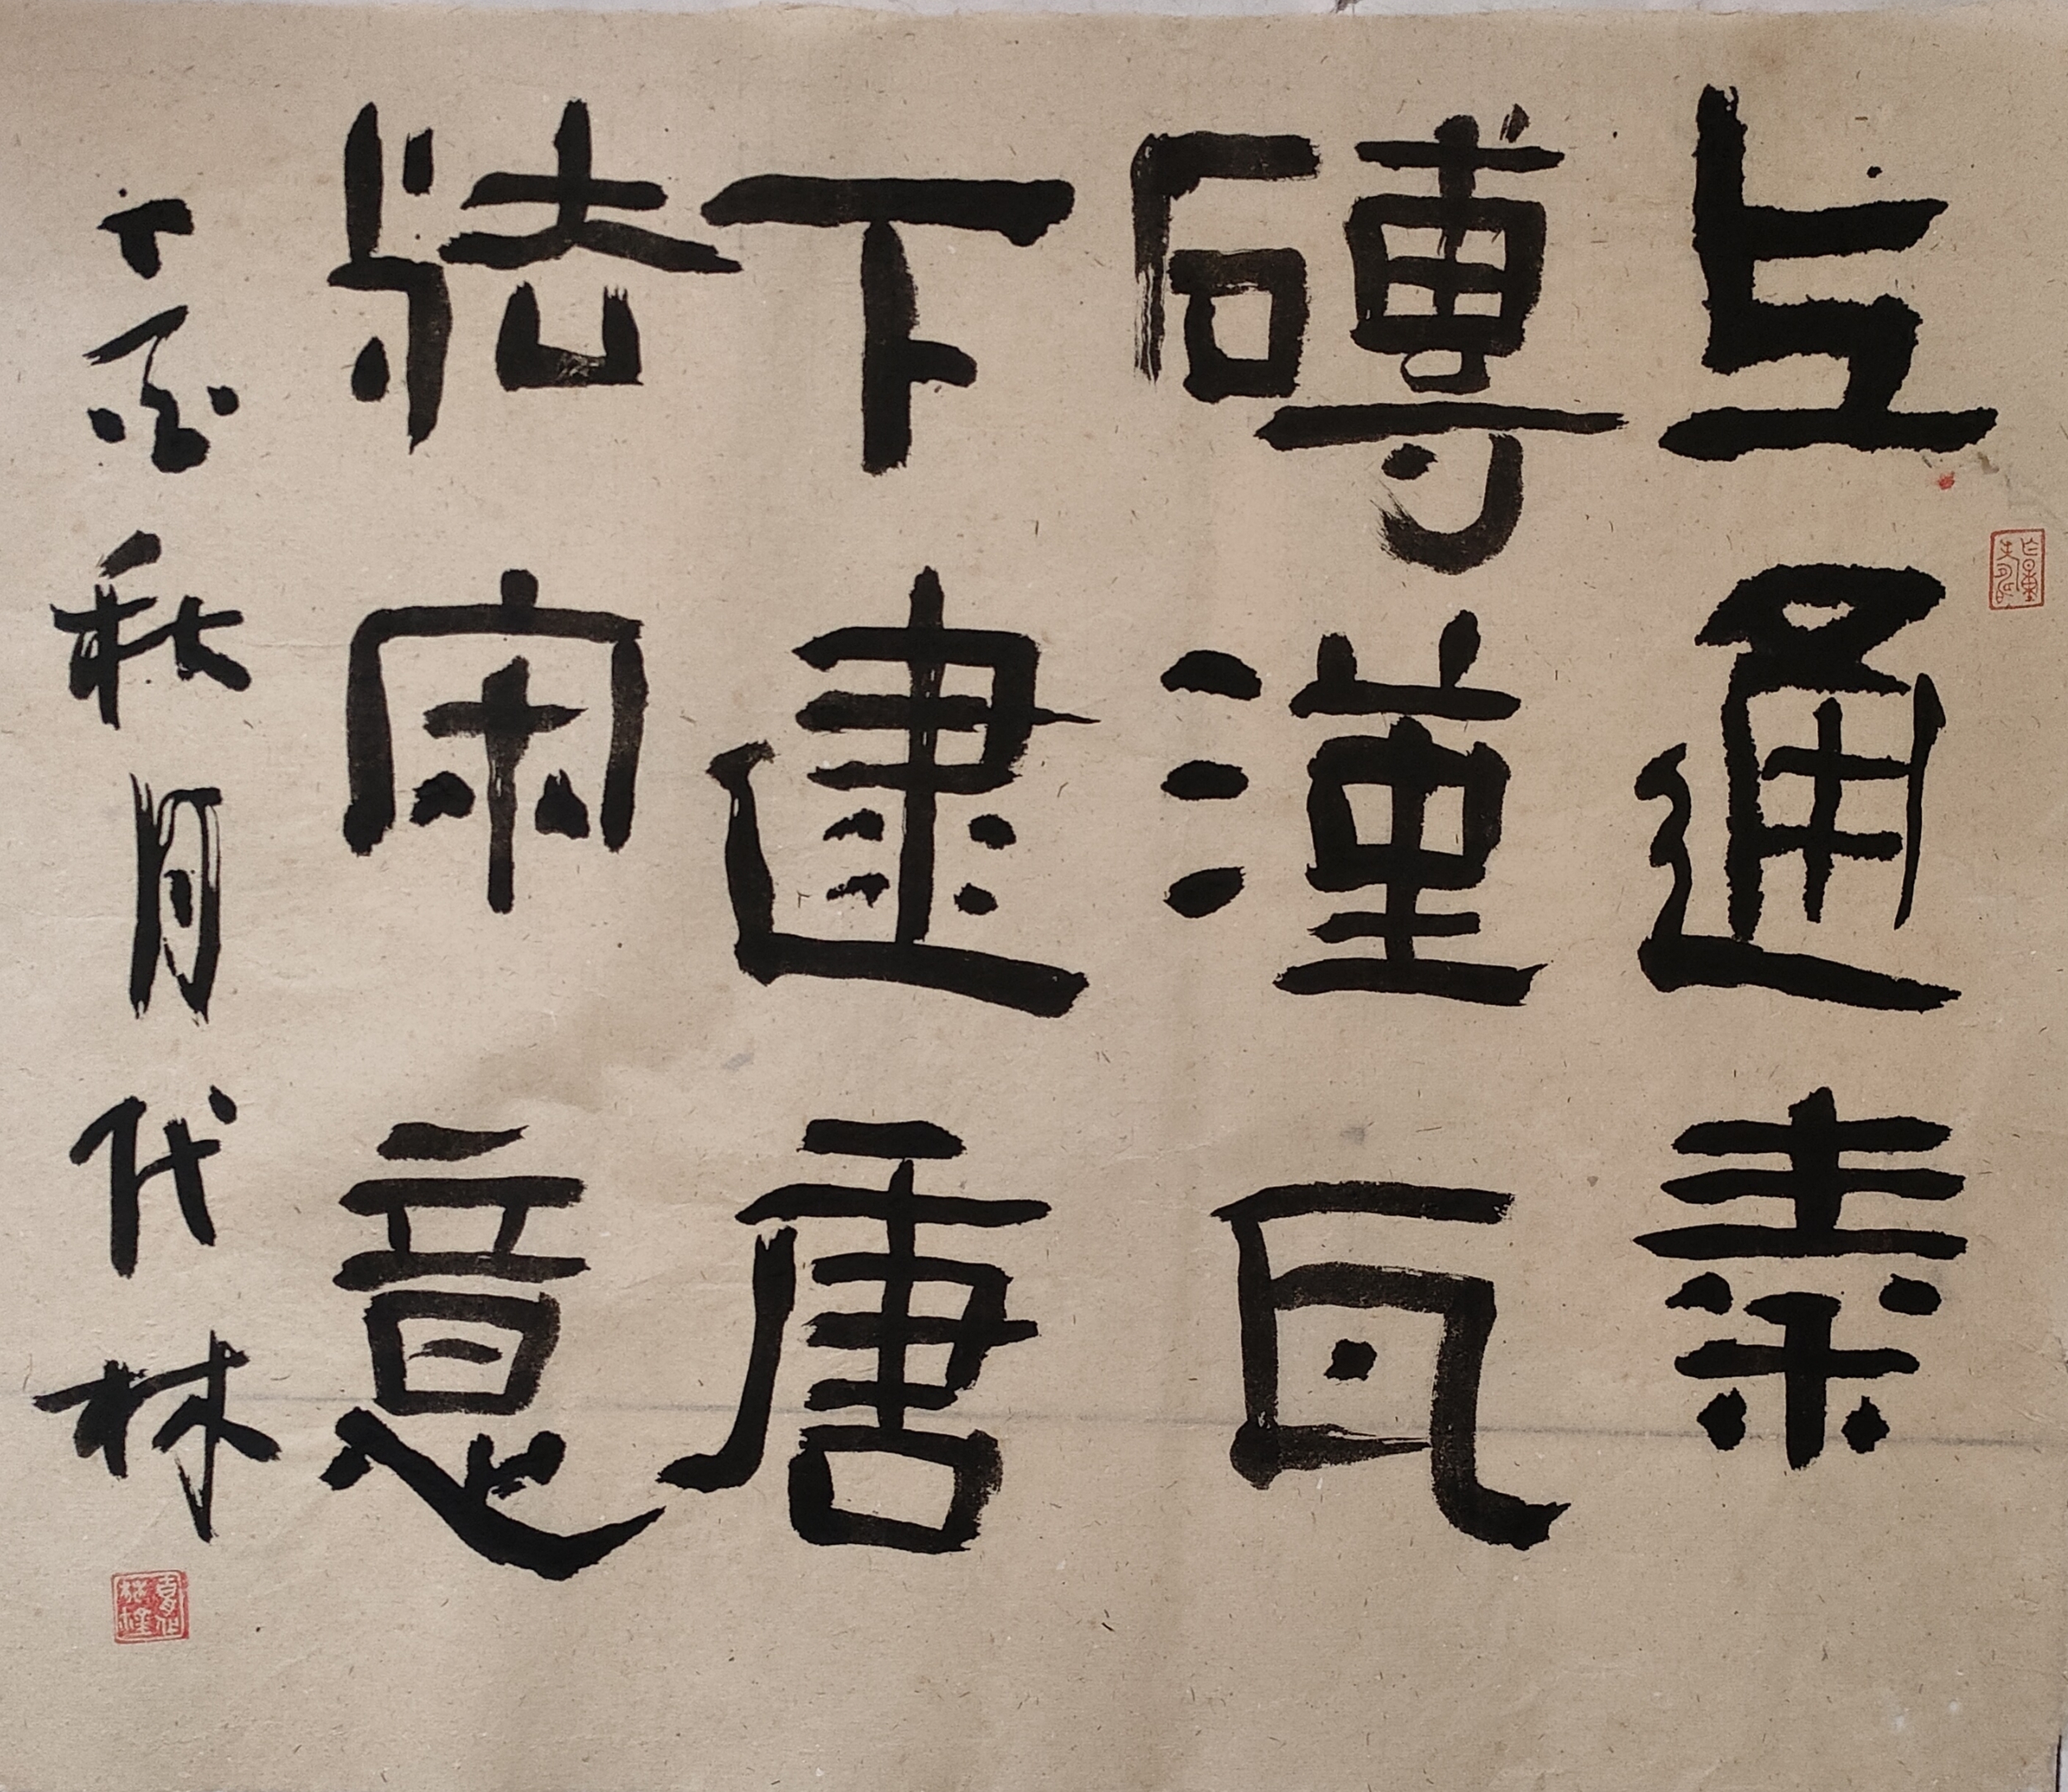 上通秦
磚漢瓦
下逮唐
法宋意
丁酉秋月代林